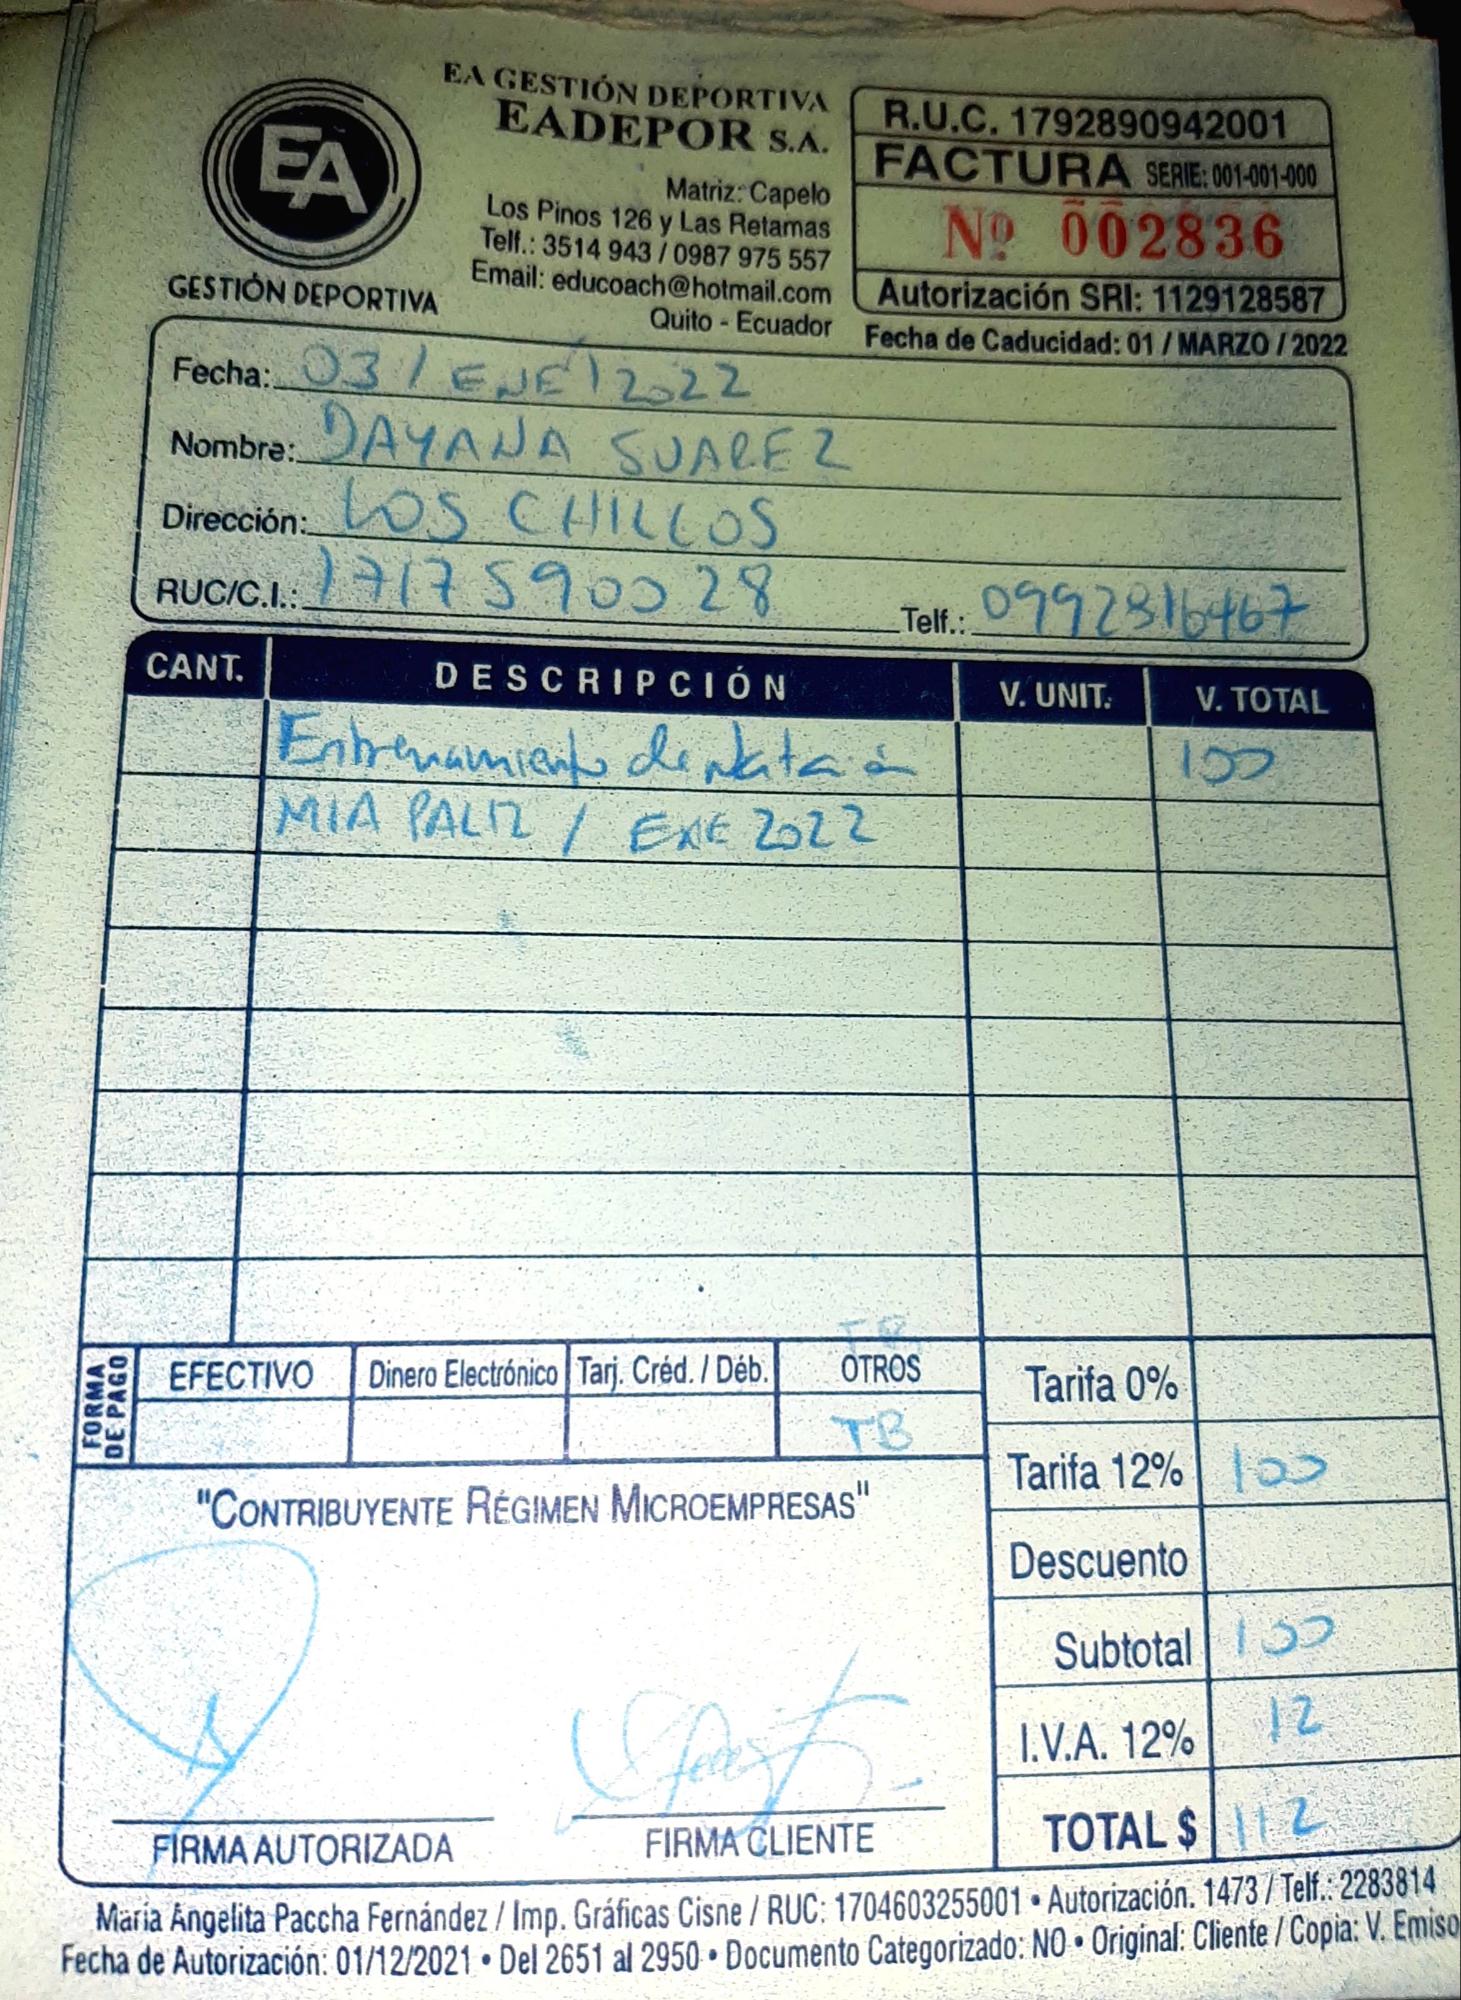 EA GESTIÓN DEPORTIVA
EADEPOR S.A.
EA
GESTIÓN DEPORTIVA
Matriz: Capelo
Los Pinos 126 y Las Retamas
Telf.: 3514 943 / 0987 975 557
Email: educoach@hotmail.com
Quito - Ecuador
R.U.C. 1792890942001
FACTURA SERIE: 001-001-000
Nº 002836
Autorización SRI: 1129128587
Fecha de Caducidad: 01 / MARZO / 2022
Fecha: 03 / ENE / 2022
Nombre: DAYANA SUAREZ
Dirección: LOS CHILLOS
RUC/C.I.: 1717590028 Telf.: 0992816467
CANT. DESCRIPCIÓN V. UNIT. V. TOTAL
Entrenamiento de 100
MIA / ENE 2022
FORMA DE PAGO
EFECTIVO Dinero Electrónico Tarj. Créd. / Déb. OTROS
TB
Tarifa 0%
Tarifa 12% 100
Descuento
Subtotal 100
I.V.A. 12% 12
TOTAL $ 112
"CONTRIBUYENTE RÉGIMEN MICROEMPRESAS"
FIRMA AUTORIZADA FIRMA CLIENTE
María Angelita Paccha Fernández / Imp. Gráficas Cisne / RUC: 1704603255001 • Autorización. 1473 / Telf.: 2283814
Fecha de Autorización: 01/12/2021 • Del 2651 al 2950 • Documento Categorizado: NO • Original: Cliente / Copia: V. Emiso